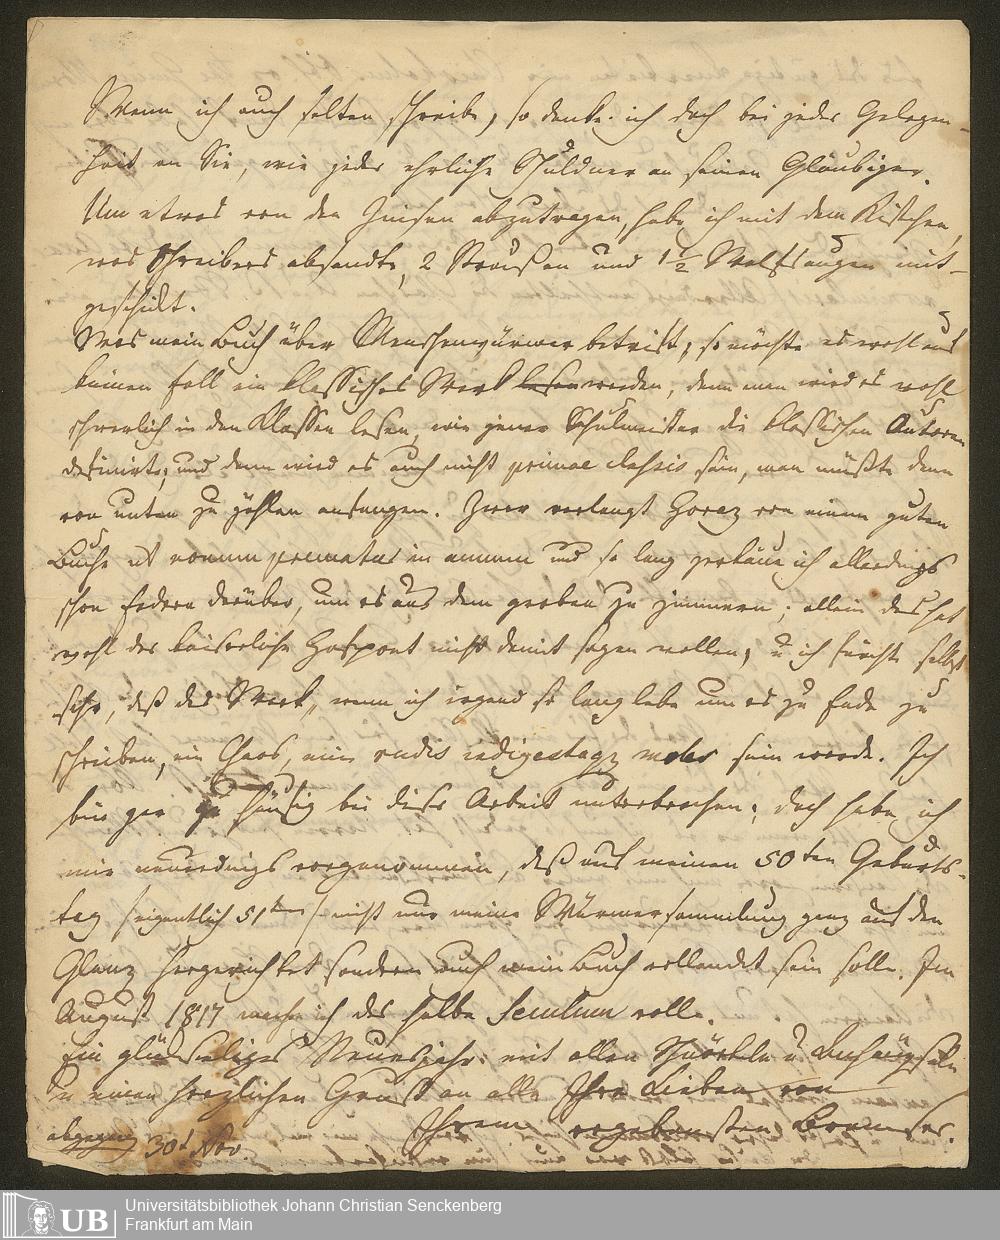 Wenn ich auch selten schreibe, so denke ich doch bei jeder Gelegen-
heit an Sie, wie jeder ehrliche Schuldner an seinen Gläubiger.
Um etwas von den Zinsen abzutragen, habe ich mit dem Kistchen,
was Schreibers absandte, 2 und 1 1/2 mit-
geschickt.
Was mein Buch über Menschenwürmer betrift, so möchte es wohl auf
keinen Fall ein klassisches Werk werden, denn man wird es wohl
schwerlich in den Klassen lesen, wie jener Schulmeister die klassischen Autoren
definirte, und dann wird es auch nicht primae classis sein, man müßte denn
von unten zu zählen anfangen. Zwar verlangt Horaz von einem guten
Buche ut nonum prematur in annum und so lang ich allerdings
schon Federn darüber, um es aus dem groben zu zimmern; allein das hat
wohl der kaiserliche Hofpoet nicht damit sagen wollen, u ich fürchte selbst
sehr, daß das Werk, wenn ich irgend so lang lebe um es zu Ende zu
schreiben, ein Chaos, eine rudis indigestaq moles sein werde. Ich
bin gar zu häufig bei dieser Arbeit unterbrochen; doch habe ich
mir neuerdings vorgenommen, daß auf meinen 50ten Geburts-
tag (eigentlich 51ten) nicht nur meine Würmersammlung ganz auf den
Glanz hergerichtet sondern auch mein Buch vollendet sein solle. Im
August 1817 mache ich das halbe Seculum voll.
Ein glückseliges Neuesjahr mit allen Schnörkeln u
u einen herzlichen Gruß an alle Ihre Lieben von
Ihrem ergebensten Bremser.
abgegang 30t Nov
Universitätsbibliothek Johann Christian Senckenberg
Frankfurt am Main
UB